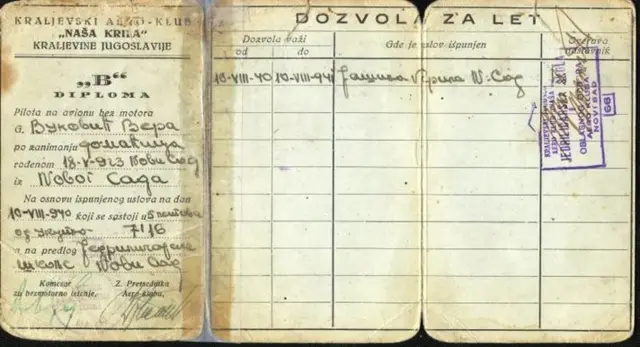 KRALJEVSKI AERO-KLUB
„NAŠA KRILA"
KRALJEVINE JUGOSLAVIJE
„B"
DIPLOMA
Pilota na avionu bez motora
G. Вуковић Вера
po zanimanju домаћица
rođenom 18-V-923 Нови Сад
iz Новог Сада
Na osnovu ispunjenog uslova na dan
10-VIII-940 koji se sastoji u 5 летова
од укупно 7'16
a na predlog Једриличарске
школе Нови Сад
Komesar
za bezmotorno letenje,
Z. Pretsednika
Aero-kluba,
DOZVOLA ZA LET
Dozvola važi
od do
Gde je uslov ispunjen
Overava
nastavnik
10-VIII-40 10-VIII-941 Н. Сад
JEDRILIČARSKA ŠKOLA
NOVI SAD